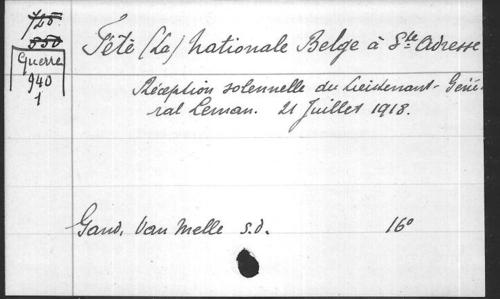 125
550
Guerre
940
1
Fête (La) Nationale Belge à Ste Adresse
Réception solennelle du Lieutenant-Géné-
ral Leman. 21 Juillet 1918.
Gand, Van Melle s.d. 16°